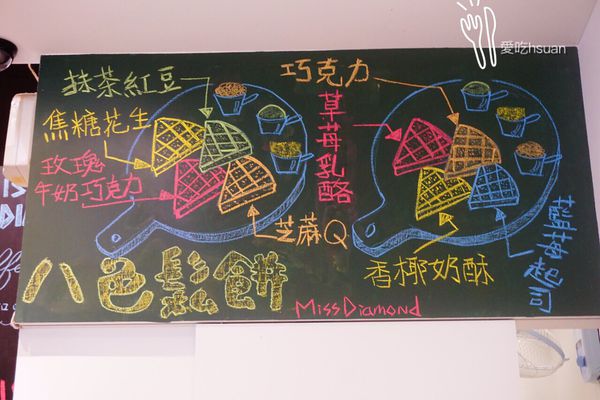 愛吃hsuan
抹茶紅豆
焦糖花生
玫瑰
牛奶巧克力
芝蔴Q
巧克力
草莓乳酪
香椰奶酥
藍莓起司
八色鬆餅
MissDiamond